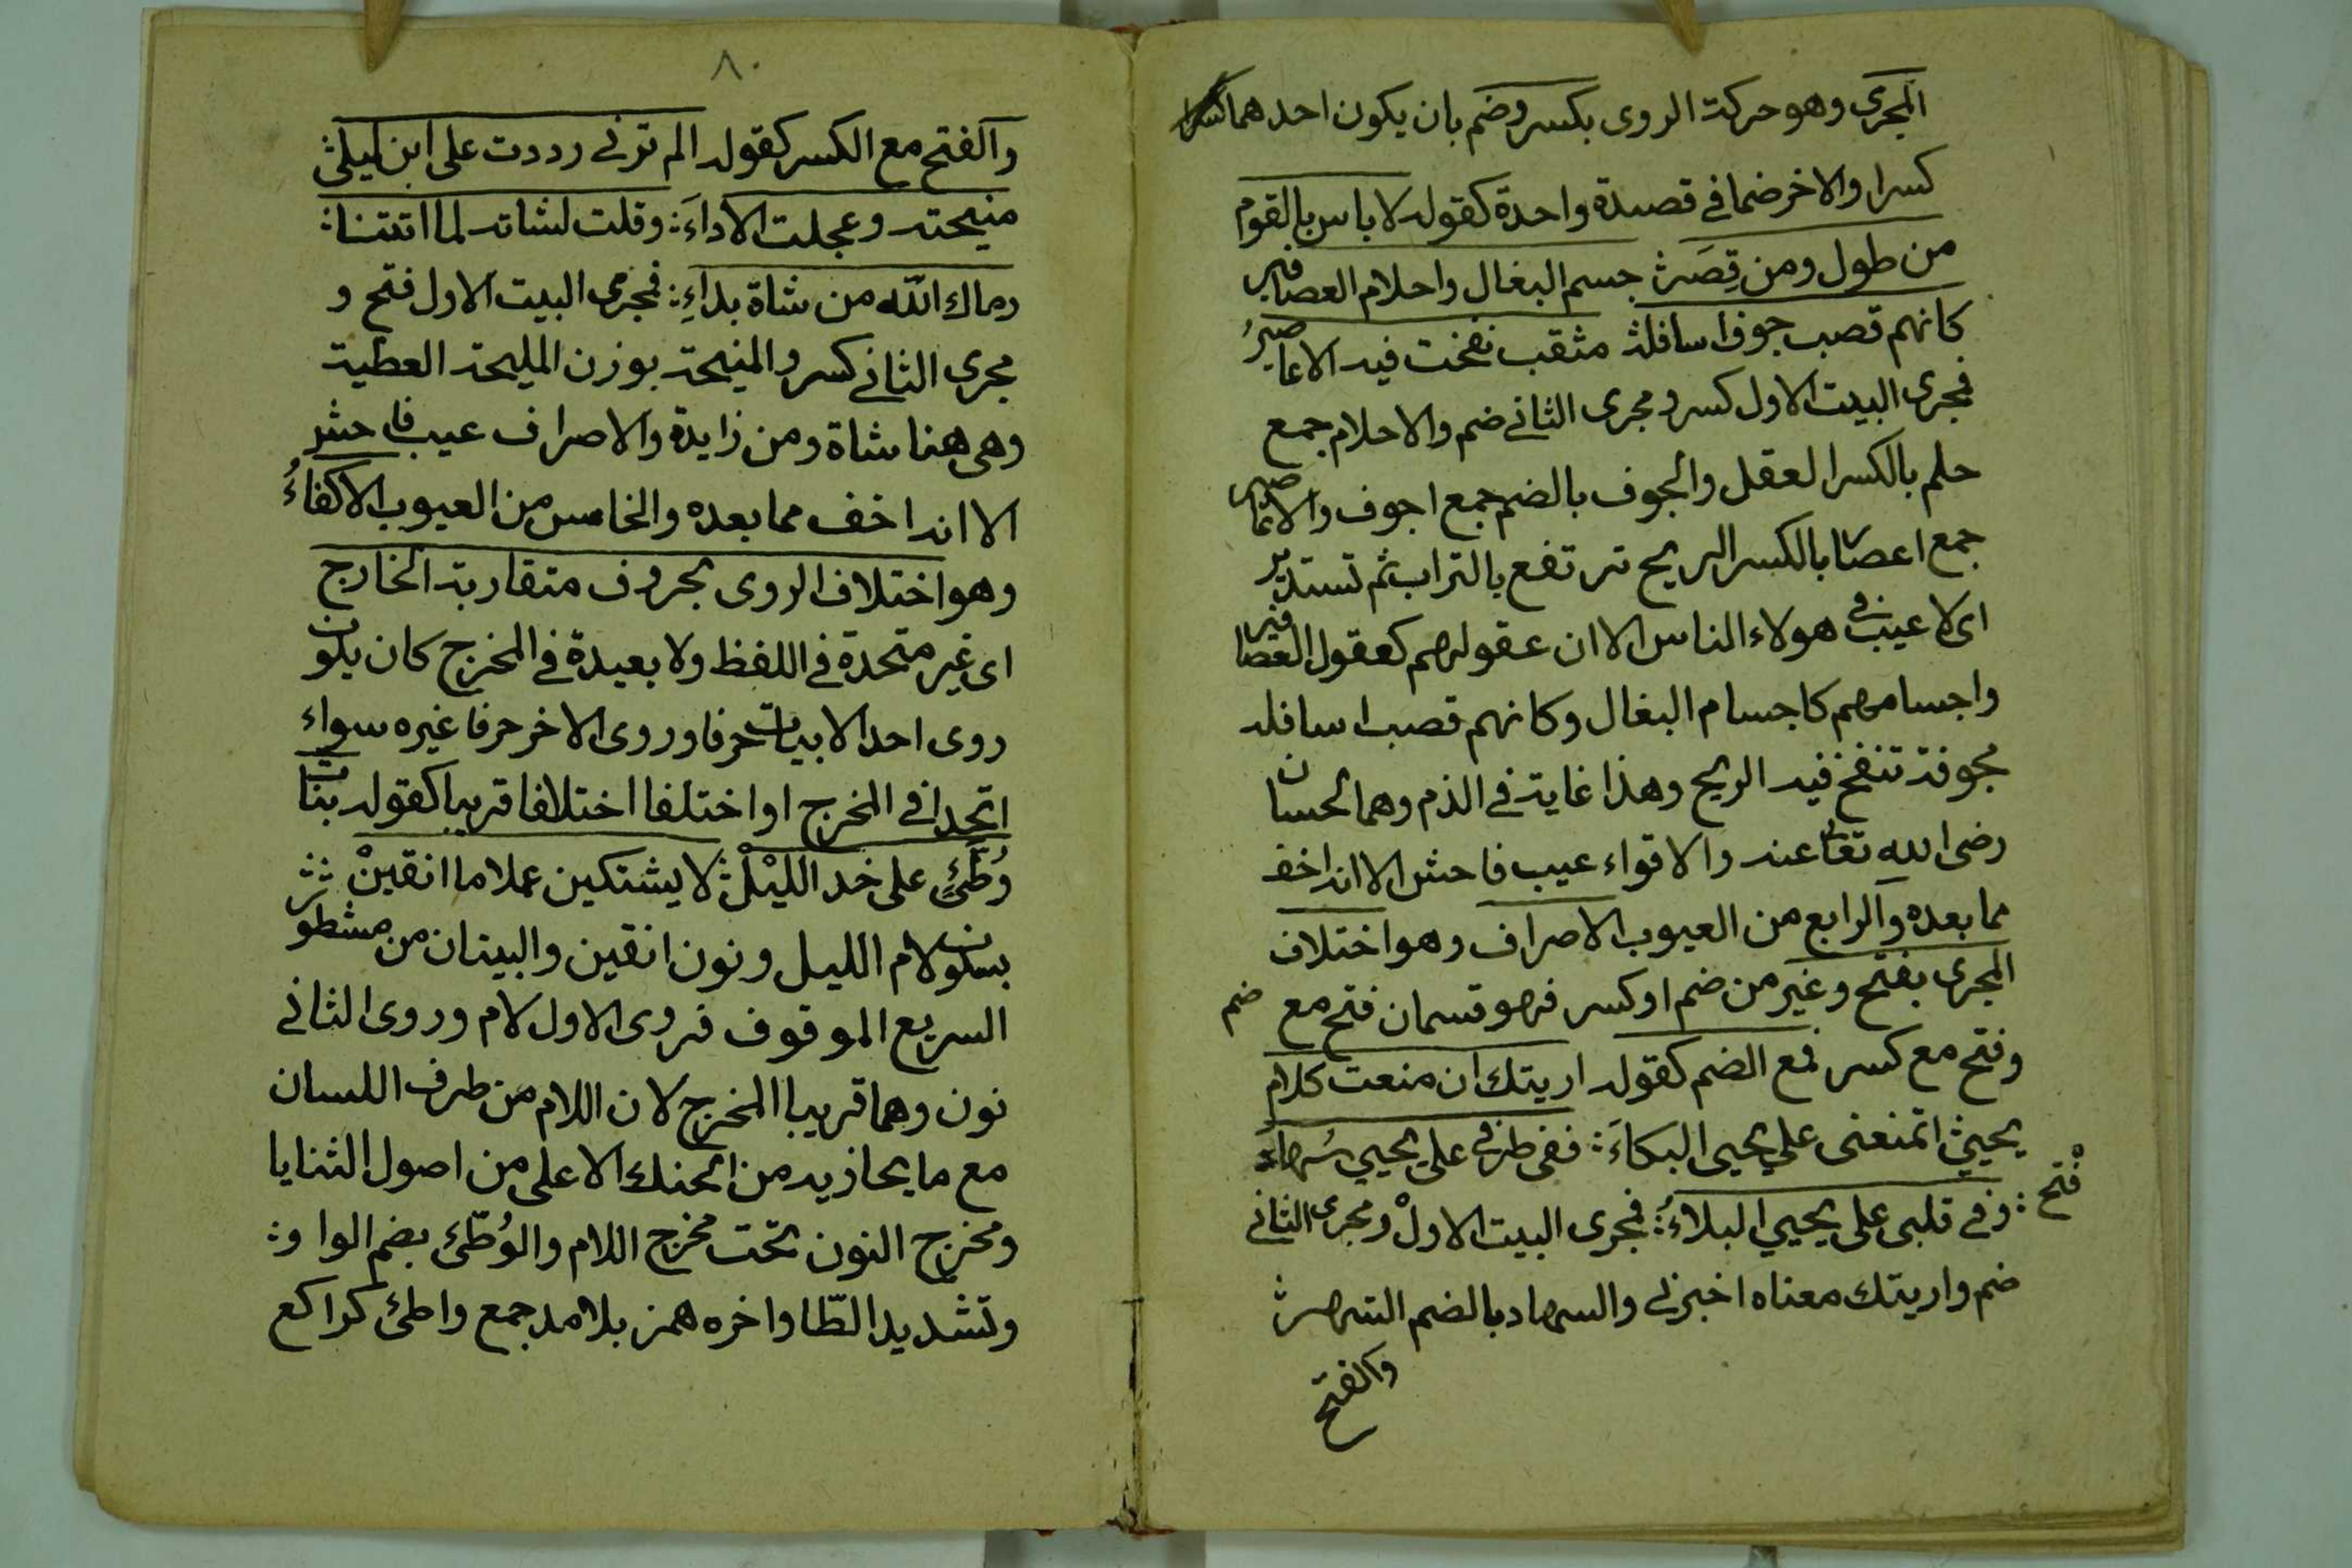 المجرى وهو حركة الروى بكسر وضم بان يكون احدهما
كسرا والاخر ضما في قصيدة واحدة كقوله لا باس بالقوم
من طول ومن قِصَر جسم البغال واحلام العصافير
كانهم قصب جوف اسافله مثقب نفخت فيه الاعاصيرُ
فمجرى البيت الاول كسر ومجرى الثاني ضم والاحلام جمع
حلم بالكسر العقل والجوف بالضم جمع اجوف والاعاصير
جمع اعصار بالكسر الريح ترتفع بالتراب ثم تستدير
اى لا عيب في هولاء الناس الا ان عقولهم كعقول العصافير
واجسامهم كاجسام البغال وكانهم قصب اسافله
مجوفة تنفخ فيه الريح وهذا غاية في الذم وهما لحسان
رضى الله تعالى عنه والاقواء عيب فاحش الا انه اخف
مما بعده والرابع من العيوب الاصراف وهو اختلاف
المجرى بفتح وغير من ضم او كسر فهو قسمان فتح مع ضم
وفتح مع كسر فمع الضم كقوله اريتك ان منعت كلام
يحيى اتمنعنى على يحيى البكاءَ ففى طرفى على يحيى سُهاد
وفي قلبى على يحيى البلاءُ فمجرى البيت الاول ومجرى الثاني
فتح
ضم واريتك معناه اخبرني والسهاد بالضم السهر
والفتح
٨٠
والفتح مع الكسر كقوله الم ترني رددت على ابن ليلى
منيحته وعجلت الاداءَ وقلت لشاته لما اتتنا
رماك الله من شاة بداءِ فمجرى البيت الاول فتح و
مجرى الثاني كسر والمنيحة بوزن المليحة العطية
وهى هنا شاة ومن زايدة والاصراف عيب فاحش
الا انه اخف مما بعده والخامس من العيوب الاكفاءُ
وهو اختلاف الروى بحروف متقاربة المخارج
اى غير متحدة في اللفظ ولا بعيدة في المخرج كان يكون
روى احد الابيات حرفا وروى الاخر حرفا غيره سواء
اتحدا في المخرج او اختلفا اختلافا قريبا كقوله بنات
وُطَّئٍ على خد الليْلْ لا يشتكين عملا ما انقينْ
بسكون لام الليل ونون انقين والبيتان من مشطور
السريع الموقوف فروى الاول لام وروى الثاني
نون وهما قريبا المخرج لان اللام من طرف اللسان
مع ما يحاذيه من الحنك الاعلى من اصول الثنايا
ومخرج النون تحت مخرج اللام والوُطّئ بضم الواو
وتشديد الطّا واخره همز بلا مد جمع واطئ كراكع